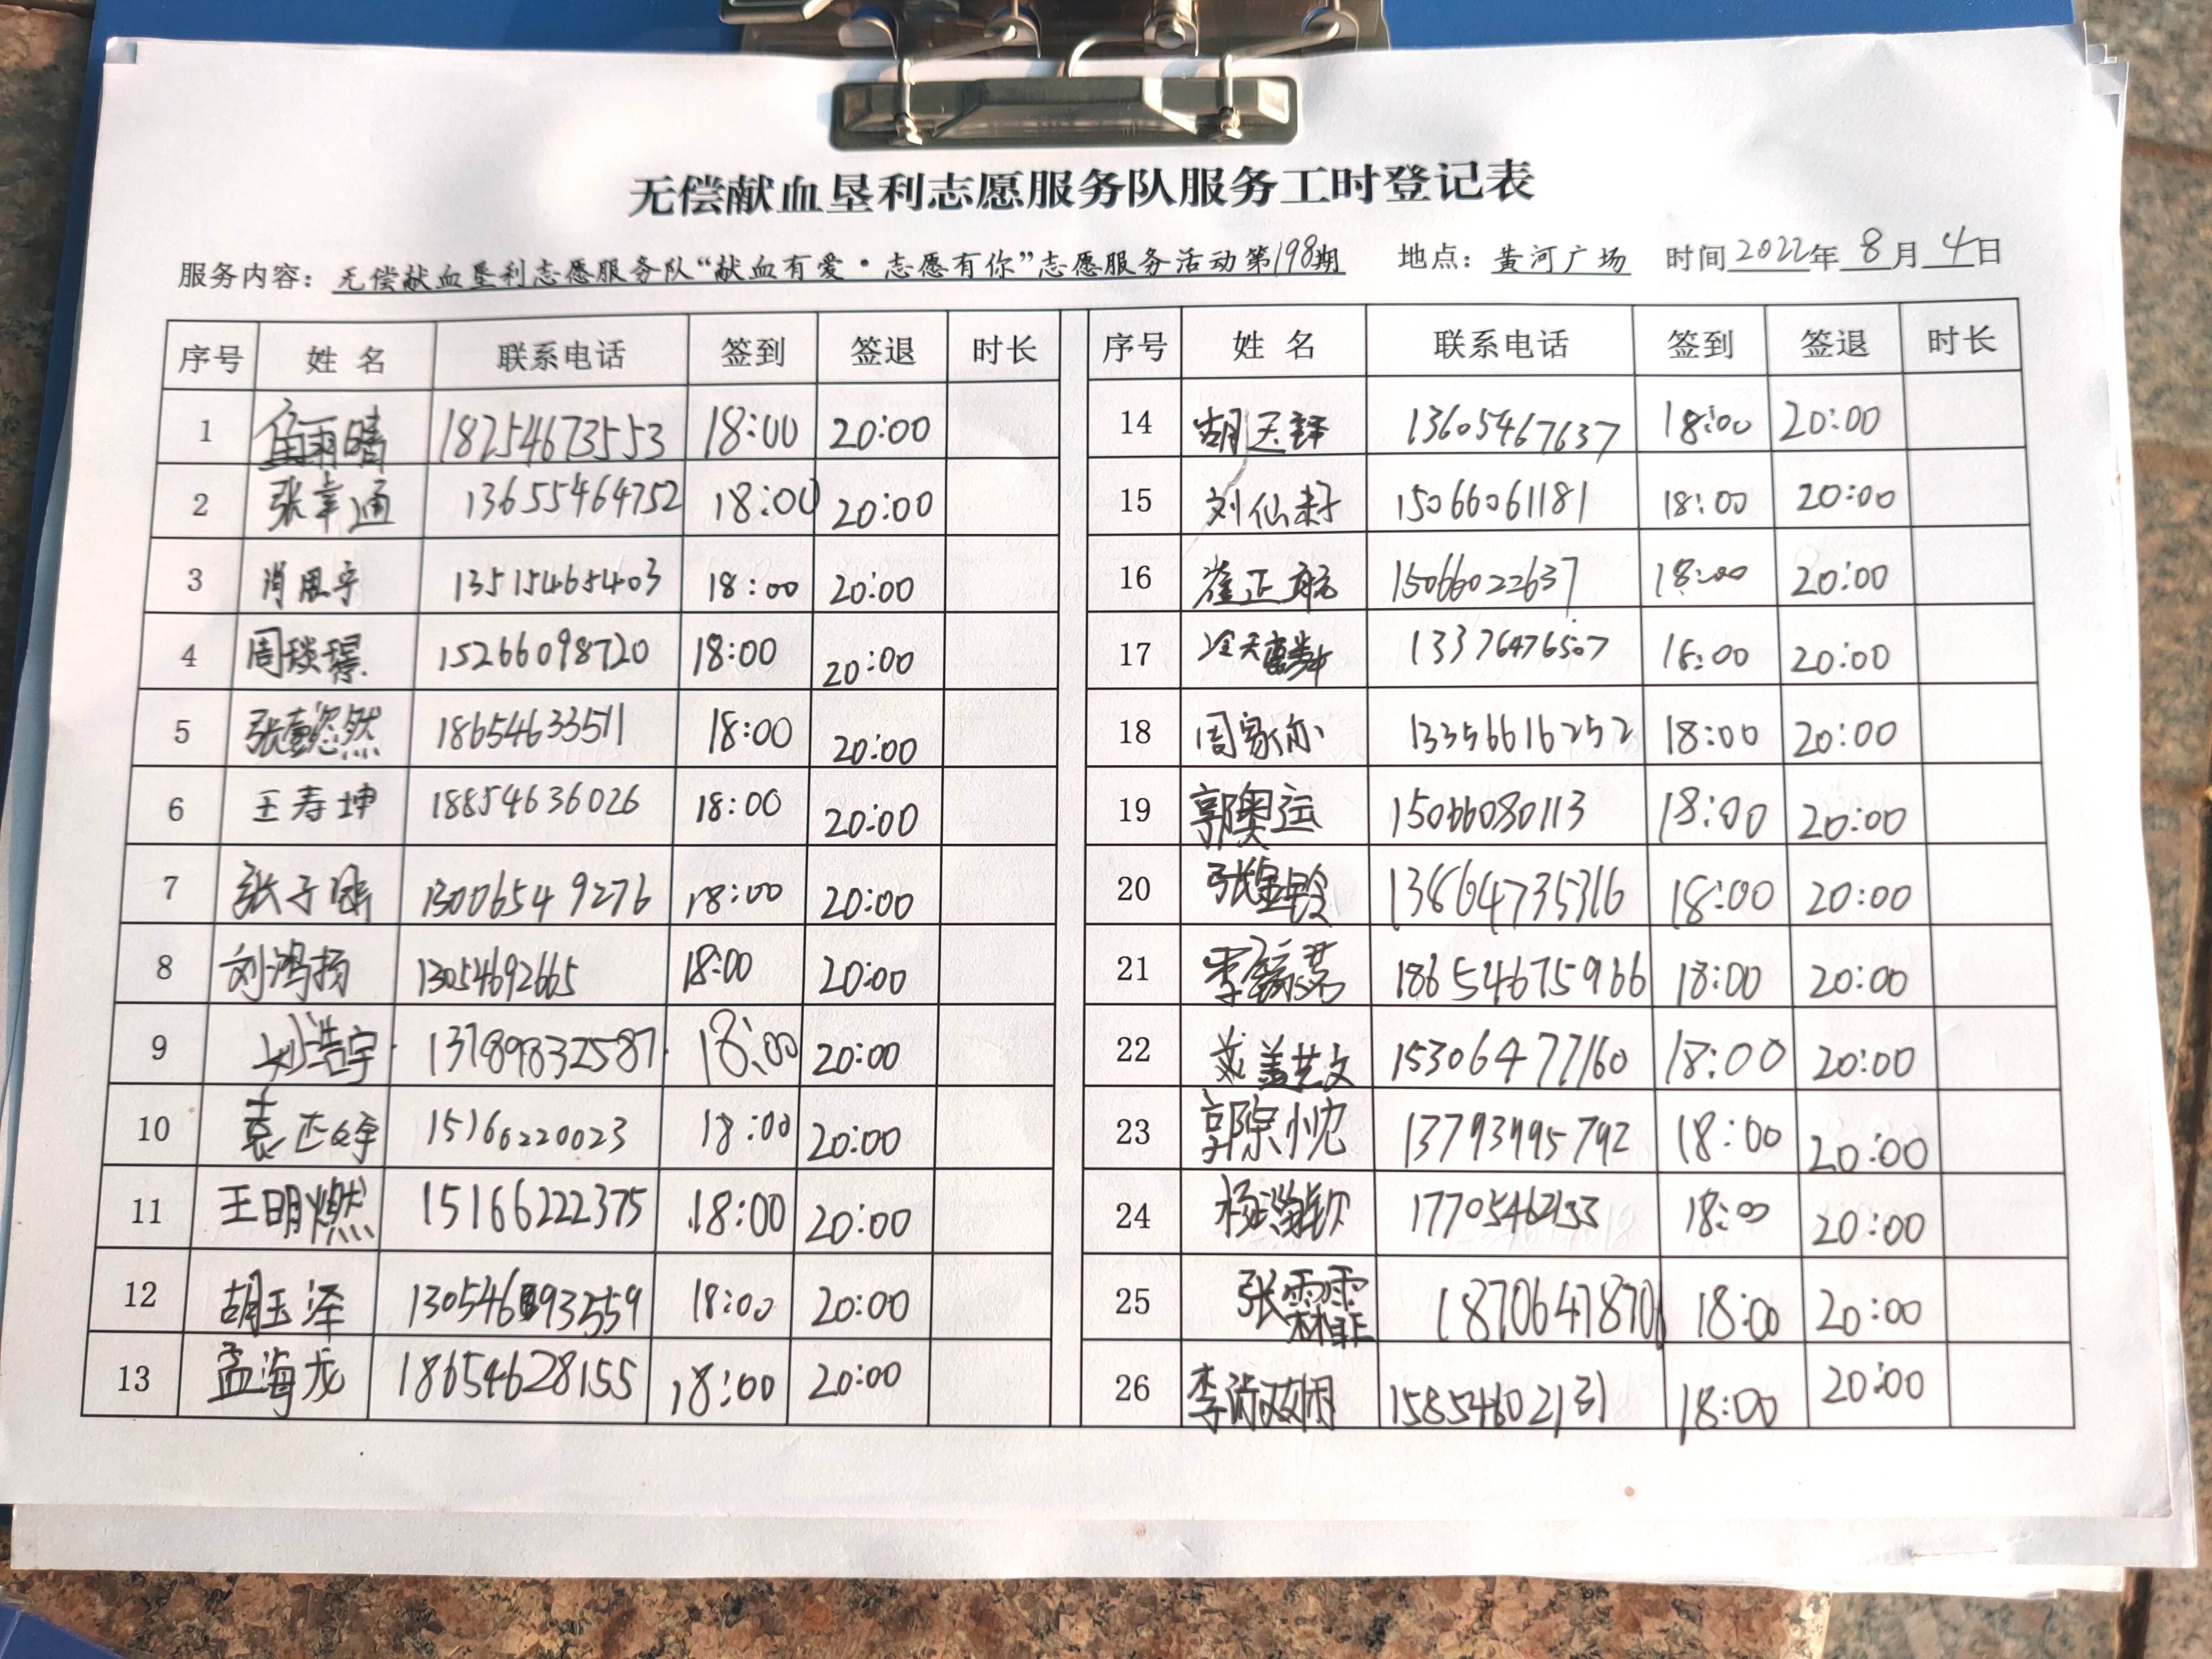 无偿献血垦利志愿服务队服务工时登记表
服务内容：无偿献血垦利志愿服务队“献血有爱·志愿有你”志愿服务活动第198期 地点：黄河广场 时间2022年8月4日
序号 姓名 联系电话 签到 签退 时长 序号 姓名 联系电话 签到 签退 时长
1 雨晴 18254673553 18:00 20:00 14 胡 13605467637 18:00 20:00
2 张 通 13655464752 18:00 20:00 15 刘仙 15066061181 18:00 20:00
3 肖思宇 13515465403 18:00 20:00 16 崔正航 15066022637 18:00 20:00
4 周琰璟 15266098720 18:00 20:00 17 冷天麟 13376476507 18:00 20:00
5 张 然 18654633511 18:00 20:00 18 周家亦 13356616252 18:00 20:00
6 王寿坤 18854636026 18:00 20:00 19 郭奥运 15066080113 18:00 20:00
7 张子 13006549276 18:00 20:00 20 张 铃 13864735316 18:00 20:00
8 刘鸿扬 13054692665 18:00 20:00 21 李 18654675966 18:00 20:00
9 刘浩宇 13789832587 18:00 20:00 22 盖艺文 15306477160 18:00 20:00
10 袁 15166220023 18:00 20:00 23 郭宗忱 13793995792 18:00 20:00
11 王明燃 15166222375 18:00 20:00 24 杨 18:00 20:00
12 胡玉泽 18:00 20:00 25 张霖霏 18706478701 18:00 20:00
13 孟海龙 18654628155 18:00 20:00 26 李淑娴 15854602131 18:00 20:00